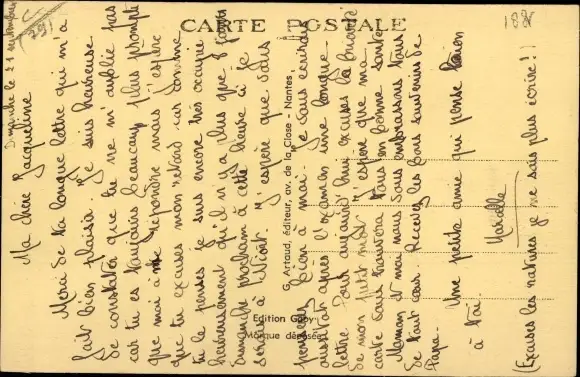 CARTE POSTALE
(29)
Dimanche le 21 septembre
Ma chère Jacqueline
Merci de ta longue lettre qui m'a
fait bien plaisir. Je suis heureuse
de constater que tu ne m'oublie pas
car tu es toujours beaucoup plus prompte
que moi à me répondre mais j'espère
que tu excuses mon retard car comme
tu le penses je suis encore très occupée
heureusement qu'il n'y a plus que
dimanche prochain à cette heure ci je
serais à Niort. J'espère que vous
penserez bien à moi. Je vous écrirai
aussitôt après l'examen une longue
lettre. Pour aujourd'hui excuses la brièveté
de mon petit mot. J'espère que ma
carte vous trouvera tous en bonne santé
Maman et moi nous vous embrassons tous
de tout cœur. Recevez les bons souvenirs de
Papa.
Une petite amie qui pense
à toi.
Marcelle
(Excuses les ratures je ne sais plus écrire!)
G. Artaud, éditeur, av. de la Close - Nantes
Edition Gaby
Marque déposée